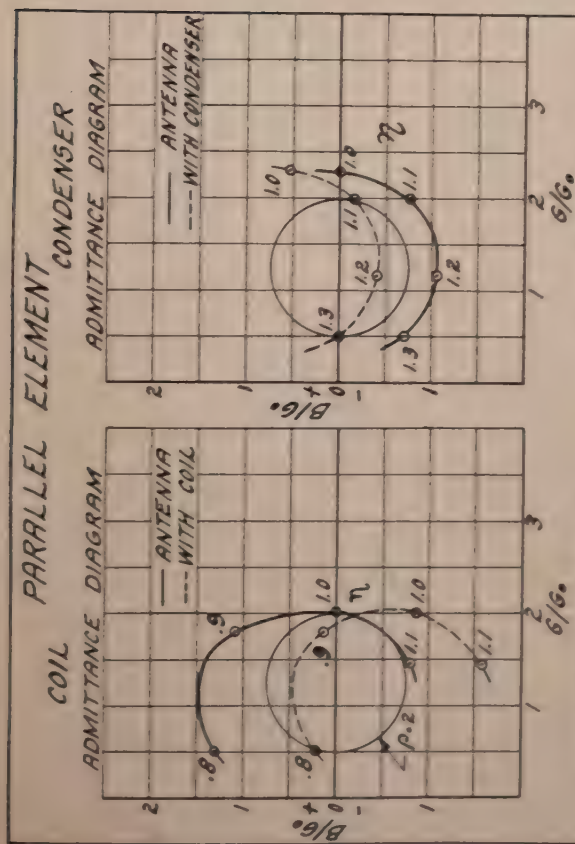 PARALLEL ELEMENT
COIL
ADMITTANCE DIAGRAM
ANTENNA
WITH COIL
2
1
+
0
-
1
B/G₀
.8
.9
1.0
η
.8
.9
1.0
1.1
1.1
ρ=2
1
2
3
G/G₀
CONDENSER
ADMITTANCE DIAGRAM
ANTENNA
WITH CONDENSER
2
1
+
0
-
1
B/G₀
1.0
1.0
η
1.3
1.1
1.1
1.2
1.2
1.3
1
2
3
G/G₀